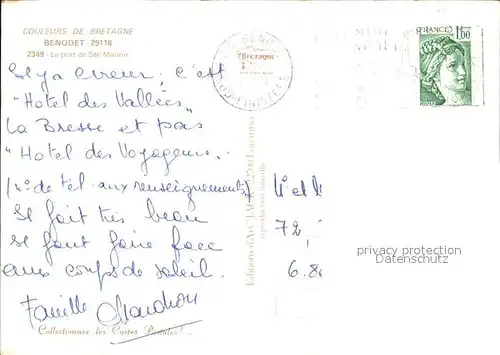 COULEURS DE BRETAGNE
BENODET - 29118
2349 - Le port de Ste Marine
Il y a erreur; c'est
"Hotel des Vallées"
La Bresse et pas
"Hotel des Voyageurs.
(N° de tel aux renseignements)
Il fait très beau
il faut faire face
aux coups de soleil.
Famille
Collectionnez les Cartes Postales!...
Editions d'Art
reproduction interdite
FRANCE 1,00
POSTES
M et
72
6.8
privacy protection
Datenschutz